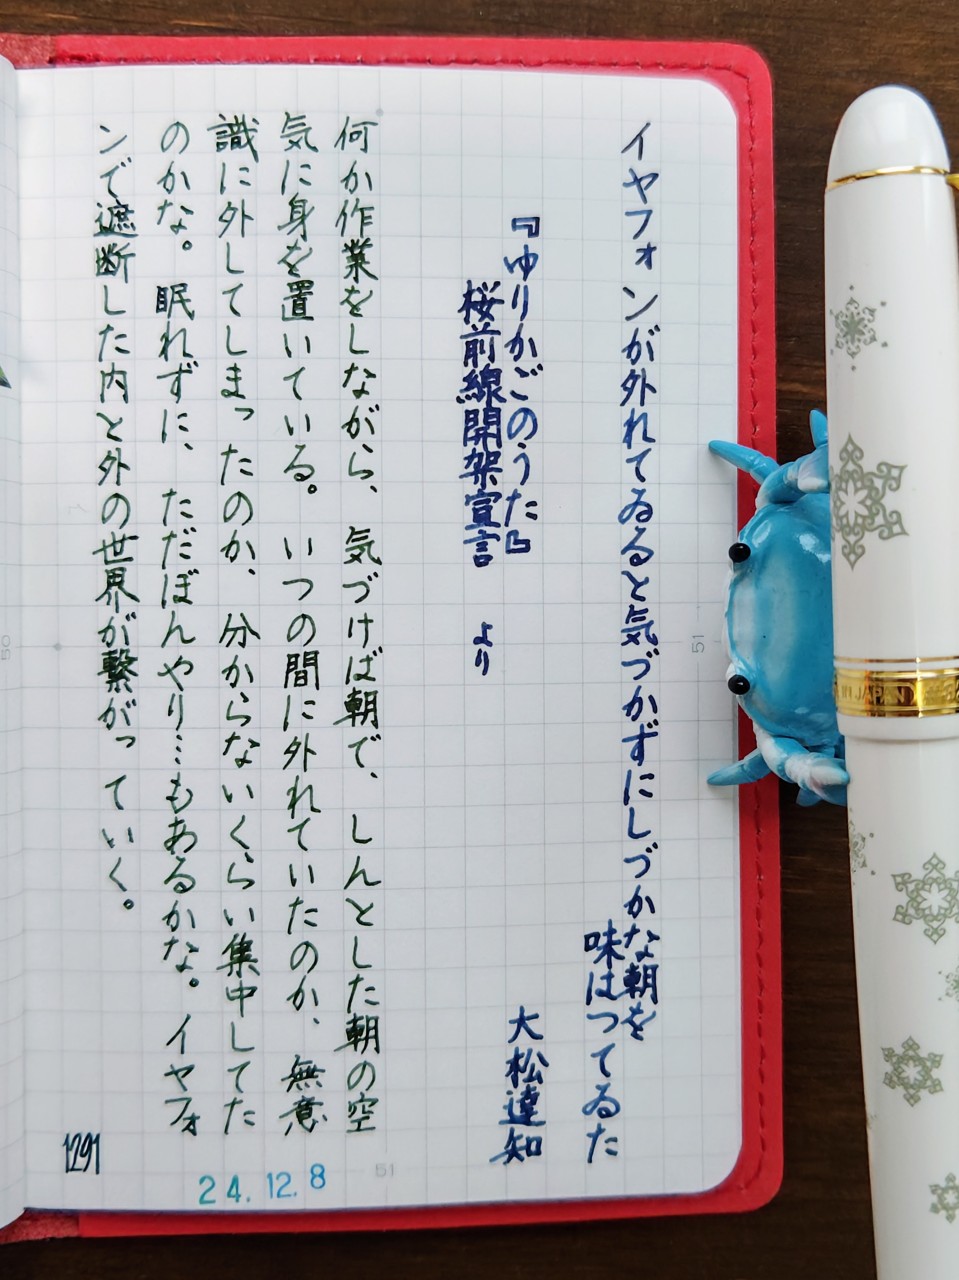 イヤフォンが外れてゐると気づかずにしづかな朝を
味はつてゐた
『ゆりかごのうた』
大松達知
桜前線開架宣言 より
何か作業をしながら、気づけば朝で、しんとした朝の空
気に身を置いている。いつの間に外れていたのか、無意
識に外してしまったのか、分からないくらい集中してた
のかな。眠れずに、ただぼんやり…もあるかな。イヤフォ
ンで遮断した内と外の世界が繋がっていく。
1291
24.12.8
51
51
50
IN JAPAN